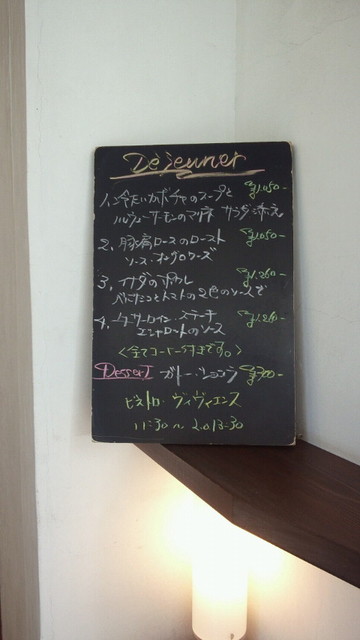 Déjeuner
1, 冷たいカボチャのスープと ¥1,050-
サーモンのマリネ サラダ添え
2, 豚肩ロースのロースト ¥1,050-
ソース・
3, イナダのポワレ ¥1,260-
トマトの2色のソースで
4, サーロイン・ステーキ ¥1,260-
エシャロットのソース
<全てコーヒー付きです。>
Dessert ガトー・ショコラ
ビストロ・ヴィヴァエンス
11:30~